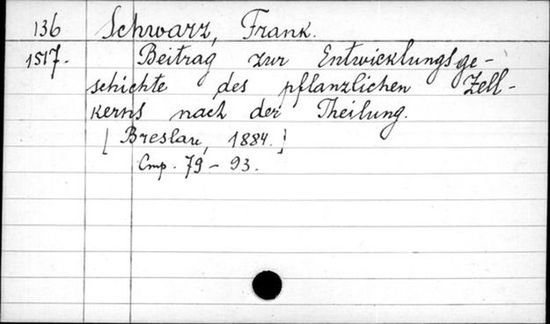 136 Schwarz, Frank.
1517. Beitrag zur Entwicklungsge-
schichte des pflanzlichen Zell-
kerns nach der Theilung.
[Breslau, 1884.]
Стр. 79-93.